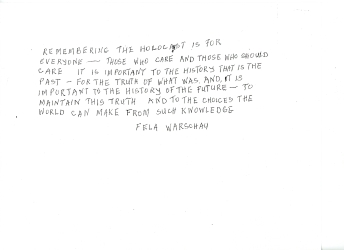 REMEMBERING THE HOLOCAST IS FOR
EVERYONE — THOSE WHO CARE AND THOSE WHO SHOULD
CARE IT IS IMPORTANT TO THE HISTORY THAT IS THE
PAST — FOR THE TRUTH OF WHAT WAS. AND, IT IS
IMPORTANT TO THE HISTORY OF THE FUTURE — TO
MAINTAIN THIS TRUTH AND TO THE CHOICES THE
WORLD CAN MAKE FROM SUCH KNOWLEDGE
FELA WARSCHAU